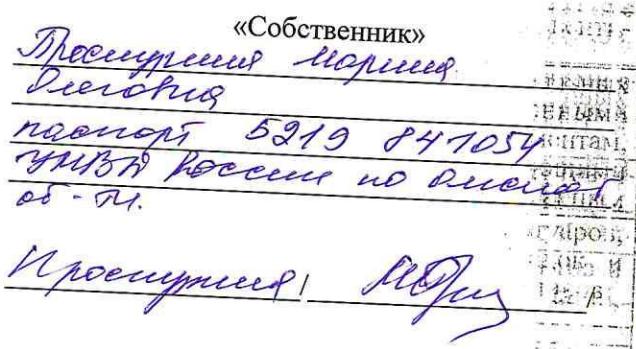 «Собственник»
Проскурня Марина
Олеговна
паспорт 5219 847054
УМВД России по Омской
об-ти.
Проскурня /